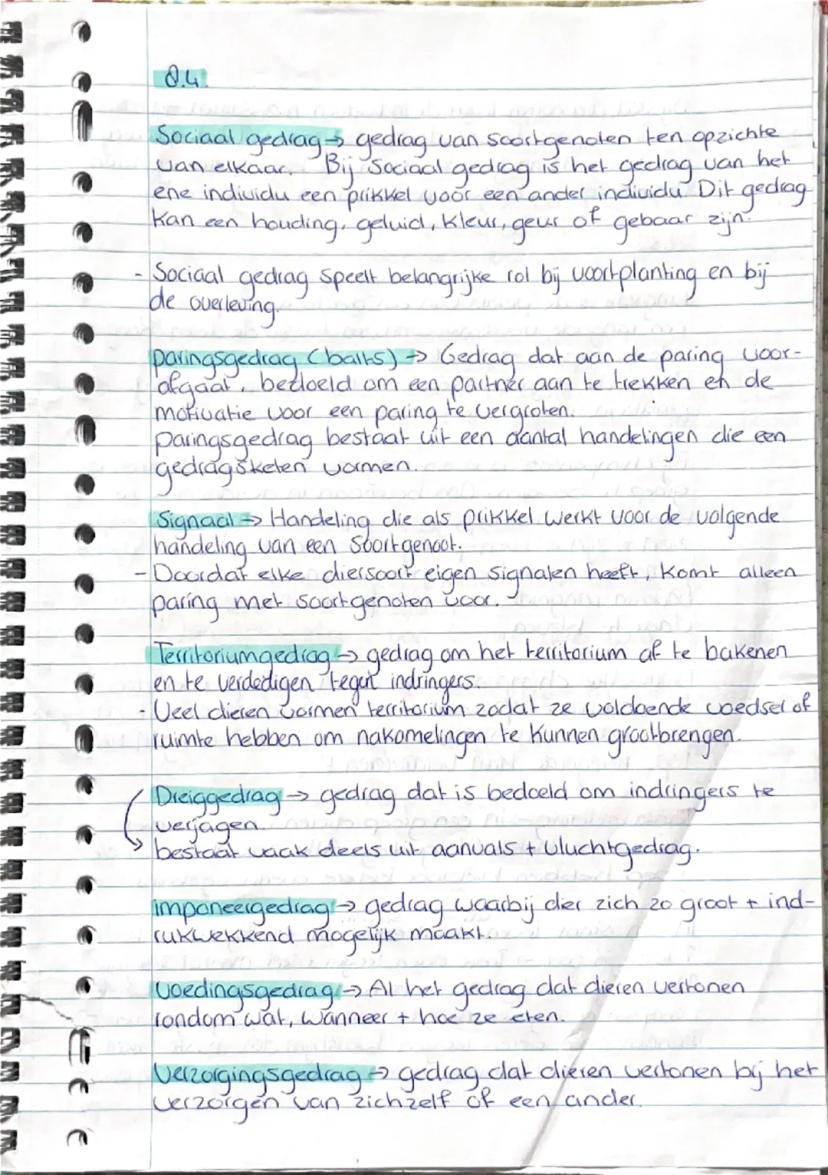 8.4.
Sociaal gedrag → gedrag van soortgenoten ten opzichte
van elkaar. Bij sociaal gedrag is het gedrag van het
ene individu een prikkel voor een ander individu. Dit gedrag
kan een houding, geluid, kleur, geur of gebaar zijn.
- Sociaal gedrag speelt belangrijke rol bij voortplanting en bij
de overleving.
paringsgedrag (balts) → Gedrag dat aan de paring voor-
afgaat, bedoeld om een partner aan te trekken en de
motivatie voor een paring te vergroten.
paringsgedrag bestaat uit een aantal handelingen die een
gedragsketen vormen.
Signaal → Handeling die als prikkel werkt voor de volgende
handeling van een soortgenoot.
- Doordat elke diersoort eigen signalen heeft, komt alleen
paring met soortgenoten voor.
Territoriumgedrag → gedrag om het territorium af te bakenen
en te verdedigen tegen indringers.
- Veel dieren vormen territorium zodat ze voldoende voedsel of
ruimte hebben om nakomelingen te kunnen grootbrengen.
Dreiggedrag → gedrag dat is bedoeld om indringers te
verjagen.
bestaat vaak deels uit aanvals + vluchtgedrag.
imponeergedrag → gedrag waarbij dier zich zo groot + ind-
rukwekkend mogelijk maakt.
voedingsgedrag → Al het gedrag dat dieren vertonen
rondom wat, wanneer + hoe ze eten.
Verzorgingsgedrag → gedrag dat dieren vertonen bij het
verzorgen van zichzelf of een ander.